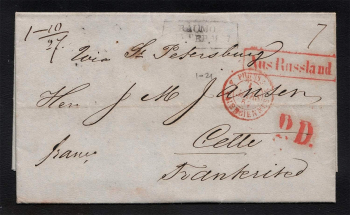 1-10
7
via St Petersburg
Aus Russland
1-21
Herr J M Jansen
P.D.
Cette
franco
Frankreich